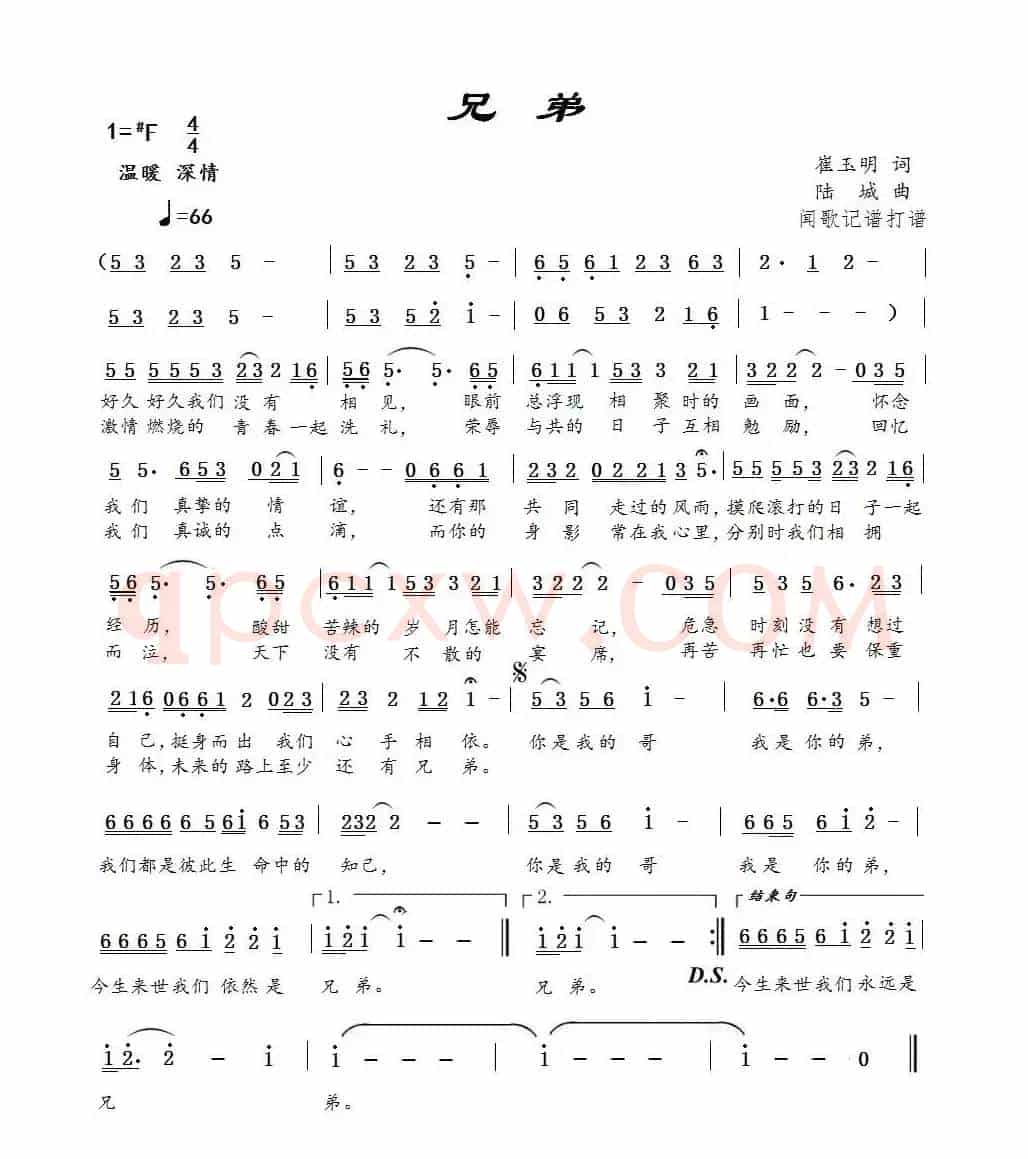 兄 弟
1=#F 4/4
温暖 深情
♩=66
崔玉明 词
陆 城 曲
闻歌记谱打谱
(5 3 2 3 5 - | 5 3 2 3 5 - | 6 5 6 1 2 3 6 3 | 2· 1 2 - |
5 3 2 3 5 - | 5 3 5 2 1 - | 0 6 5 3 2 1 6 | 1 - - - ) |
5 5 5 5 5 3 2 3 2 1 6 | 5 6 5· 5· 6 5 | 6 1 1 1 5 3 3 2 1 | 3 2 2 2 - 0 3 5 |
好久 好久我们 没 有 相 见, 眼前 总浮现 相 聚时的 画 面, 怀念
激情 燃烧的 青 春 一起 洗 礼, 荣辱 与共的 日 子互相 勉 励, 回忆
5 5· 6 5 3 0 2 1 | 6 - - 0 6 6 1 | 2 3 2 0 2 2 1 3 5· | 5 5 5 5 3 2 3 2 1 6 |
我们 真挚的 情 谊, 还有那 共 同 走过的风雨,摸爬滚打的日 子一起
我们 真诚的 点 滴, 而你的 身 影 常在我心里,分别时我们相 拥
5 6 5· 5· 6 5 | 6 1 1 1 5 3 3 2 1 | 3 2 2 2 - 0 3 5 | 5 3 5 6· 2 3 |
经 历, 酸甜 苦辣的 岁 月怎能 忘 记, 危急 时刻没有 想过
而 泣, 天下 没有 不 散的 宴 席, 再苦 再忙也 要 保重
2 1 6 0 6 6 1 2 0 2 3 | 2 3 2 1 2 1 - | 5 3 5 6 1 - | 6· 6 6· 3 5 - |
自己,挺身而出 我们 心 手 相 依。 你是我的 哥 我是 你的 弟,
身 体,未来的路上至少 还 有 兄 弟。
6 6 6 6 6 5 6 1 6 5 3 | 2 3 2 2 - - | 5 3 5 6 1 - | 6 6 5 6 1 2 - |
我们都是彼此生 命中的 知己, 你是我的 哥 我是 你的弟,
1. 2. 结束句
6 6 6 5 6 1 2 2 1 | 1 2 1 1 - - ‖ 1 2 1 1 - - :‖ 6 6 6 5 6 1 2 2 1 |
D.S.
今生来世我们 依然 是 兄 弟。 兄 弟。 今生来世我们永远是
1 2· 2 - 1 | 1 - - - | 1 - - - | 1 - - 0 ‖
兄 弟。
qpcxw.COM